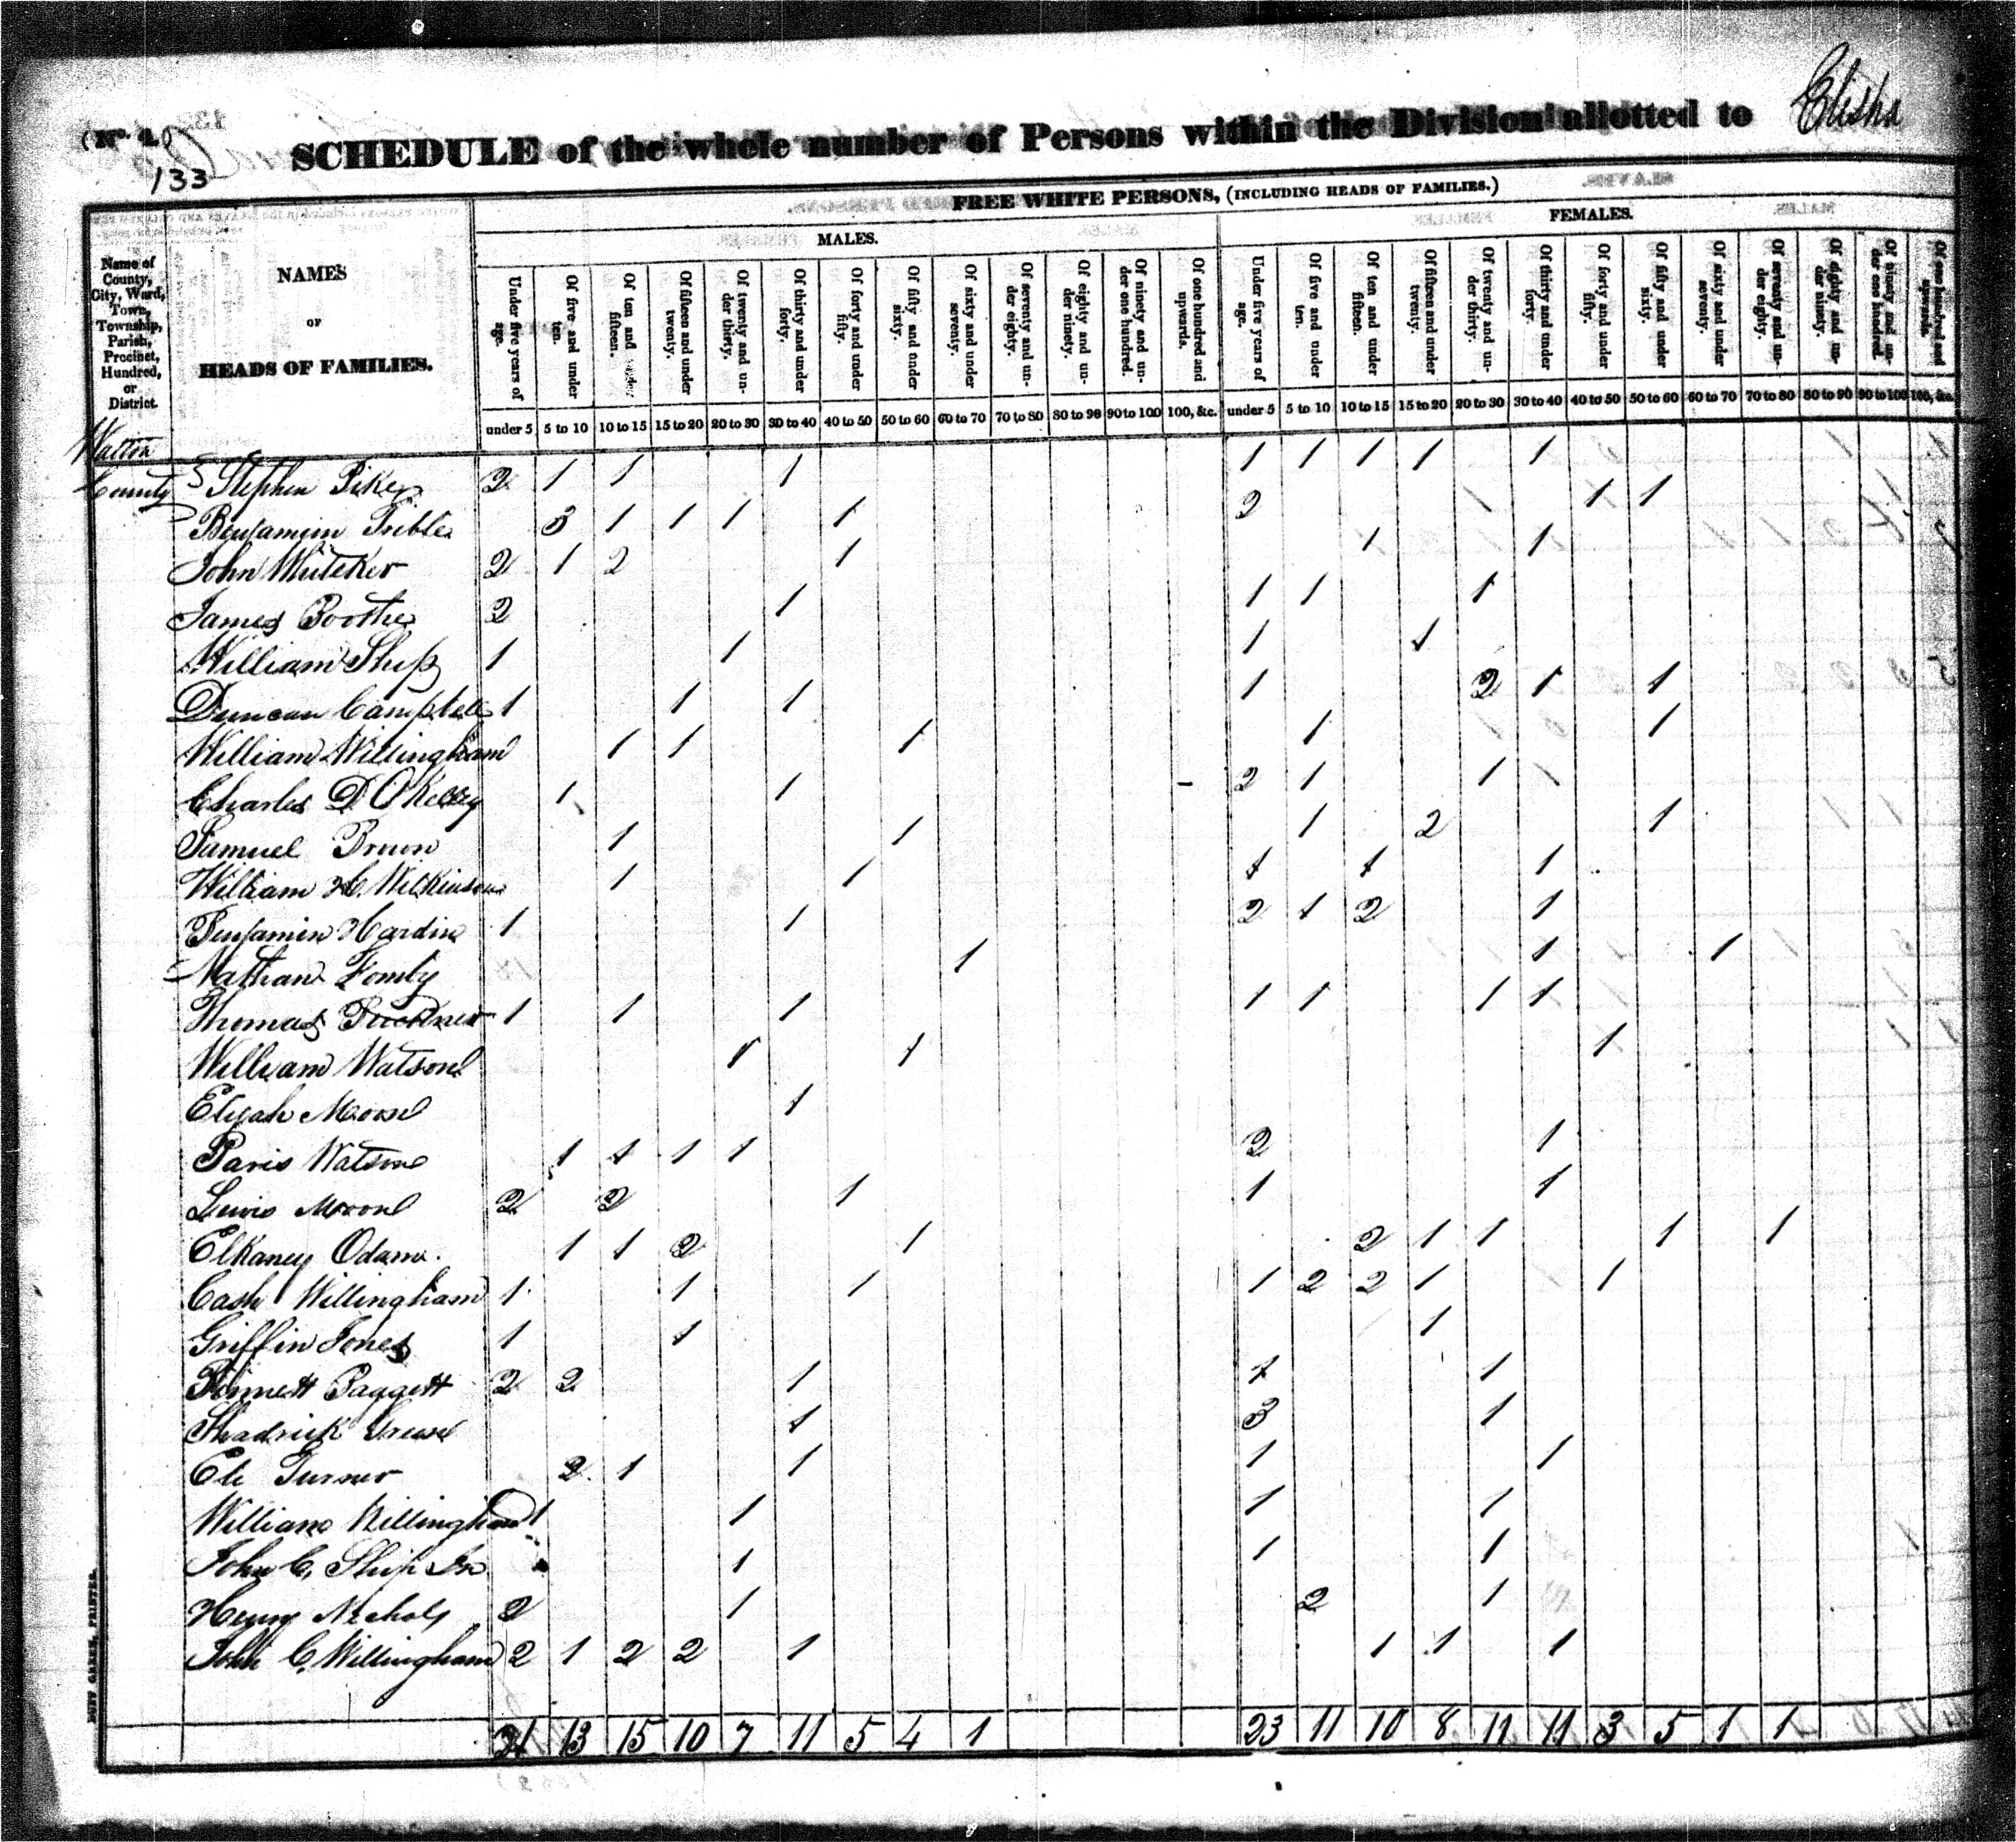 (No. 4.)
133
SCHEDULE of the whole number of Persons within the Division allotted to Elisha
FREE WHITE PERSONS, (INCLUDING HEADS OF FAMILIES.)
MALES. FEMALES.
Name of County, City, Ward, Town, Township, Parish, Precinct, Hundred, or District.
NAMES
OF
HEADS OF FAMILIES.
Under five years of age. Of five and under ten. Of ten and under fifteen. Of fifteen and under twenty. Of twenty and under thirty. Of thirty and under forty. Of forty and under fifty. Of fifty and under sixty. Of sixty and under seventy. Of seventy and under eighty. Of eighty and under ninety. Of ninety and under one hundred. Of one hundred and upwards. Under five years of age. Of five and under ten. Of ten and under fifteen. Of fifteen and under twenty. Of twenty and under thirty. Of thirty and under forty. Of forty and under fifty. Of fifty and under sixty. Of sixty and under seventy. Of seventy and under eighty. Of eighty and under ninety. Of ninety and under one hundred. Of one hundred and upwards.
under 5 5 to 10 10 to 15 15 to 20 20 to 30 30 to 40 40 to 50 50 to 60 60 to 70 70 to 80 80 to 90 90 to 100 100, &c. under 5 5 to 10 10 to 15 15 to 20 20 to 30 30 to 40 40 to 50 50 to 60 60 to 70 70 to 80 80 to 90 90 to 100 100, &c.
Walton
County Stephen Piker 2 1 1 1 1 1 1 1 1
Benjamin Trible 3 1 1 1 1 2 1 1
John Whiteker 2 1 2 1 1 1
James Boothe 2 1 1 1 1
William Ship 1 1 1 1
Duncan Campbell 1 1 1 1 2 1 1
William Willingham 1 1 1 1 1
Charles D OKelley 1 1 - 2 1 1
Samuel 1 1 1 2 1
William H. Wilkinson 1 1 1 1 1
Benjamin Hardin 1 1 2 1 2 1
Nathan Fomby 1 1 1
Thomas 1 1 1 1 1 1 1
William Watson 1 1 1
Elijah Moore 1
Paris Watson 1 1 1 1 2 1
Lewis Moore 2 2 1 1 1
Elkaney Odam. 1 1 2 1 2 1 1 1 1
Cash Willingham 1 1 1 1 2 2 1 1
Griffin Jones 1 1 1
Paggett 2 2 1 1 1
Shadrick Green 1 3 1
Eli Turner 2 1 1 1 1
William Willingham 1 1 1 1
John C. Ship 1 1 1
Henry Nichols 2 1 2 1
John C. Willingham 2 1 2 2 1 1 1 1
21 13 15 10 7 11 5 4 1 23 11 10 8 11 11 3 5 1 1
DUFF GREEN, PRINTER.